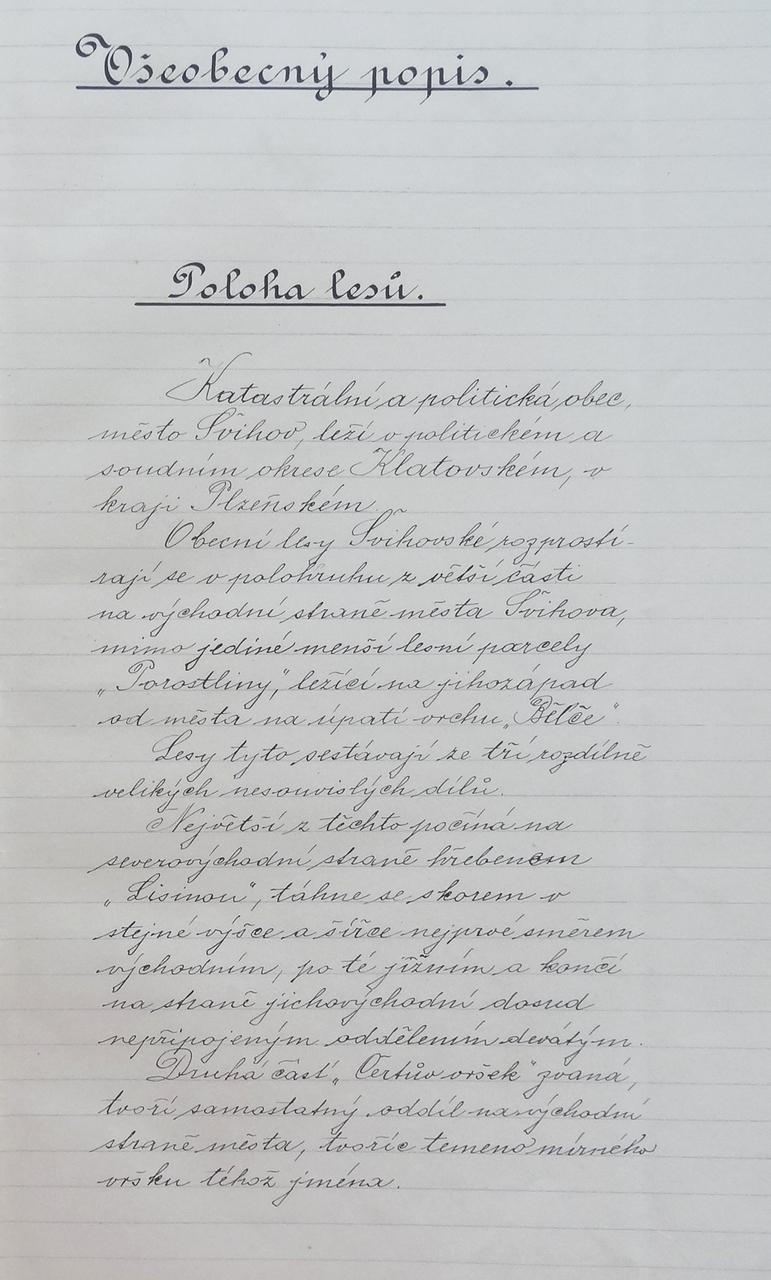 Všeobecný popis.
Poloha lesů.
Katastrální a politická obec,
město Švihov, leží v politickém a
soudním okrese Klatovském, v
kraji Plzeňském.
Obecní lesy Švihovské rozprostí-
rají se v polohruhu z větší části
na východní straně města Švihova,
mimo jediné menší lesní parcely
„Porostliny", ležící na jihozápad
od města na úpatí vrchu „Bělče".
Lesy tyto sestávají ze tří rozdílně
velikých nesouvislých dílů.
Největší z těchto počíná na
severovýchodní straně hřebenem
„Lisinou", táhne se skorem v
stejné výšce a šířce nejprvé směrem
východním, po té jižním a končí
na straně jichovýchodní dosud
nepřipojeným oddělením devátým.
Druhá část „Čertův vršek" zvaná,
tvoří samostatný oddíl na východní
straně města, tvoříc temeno mírného
vršku téhož jména.